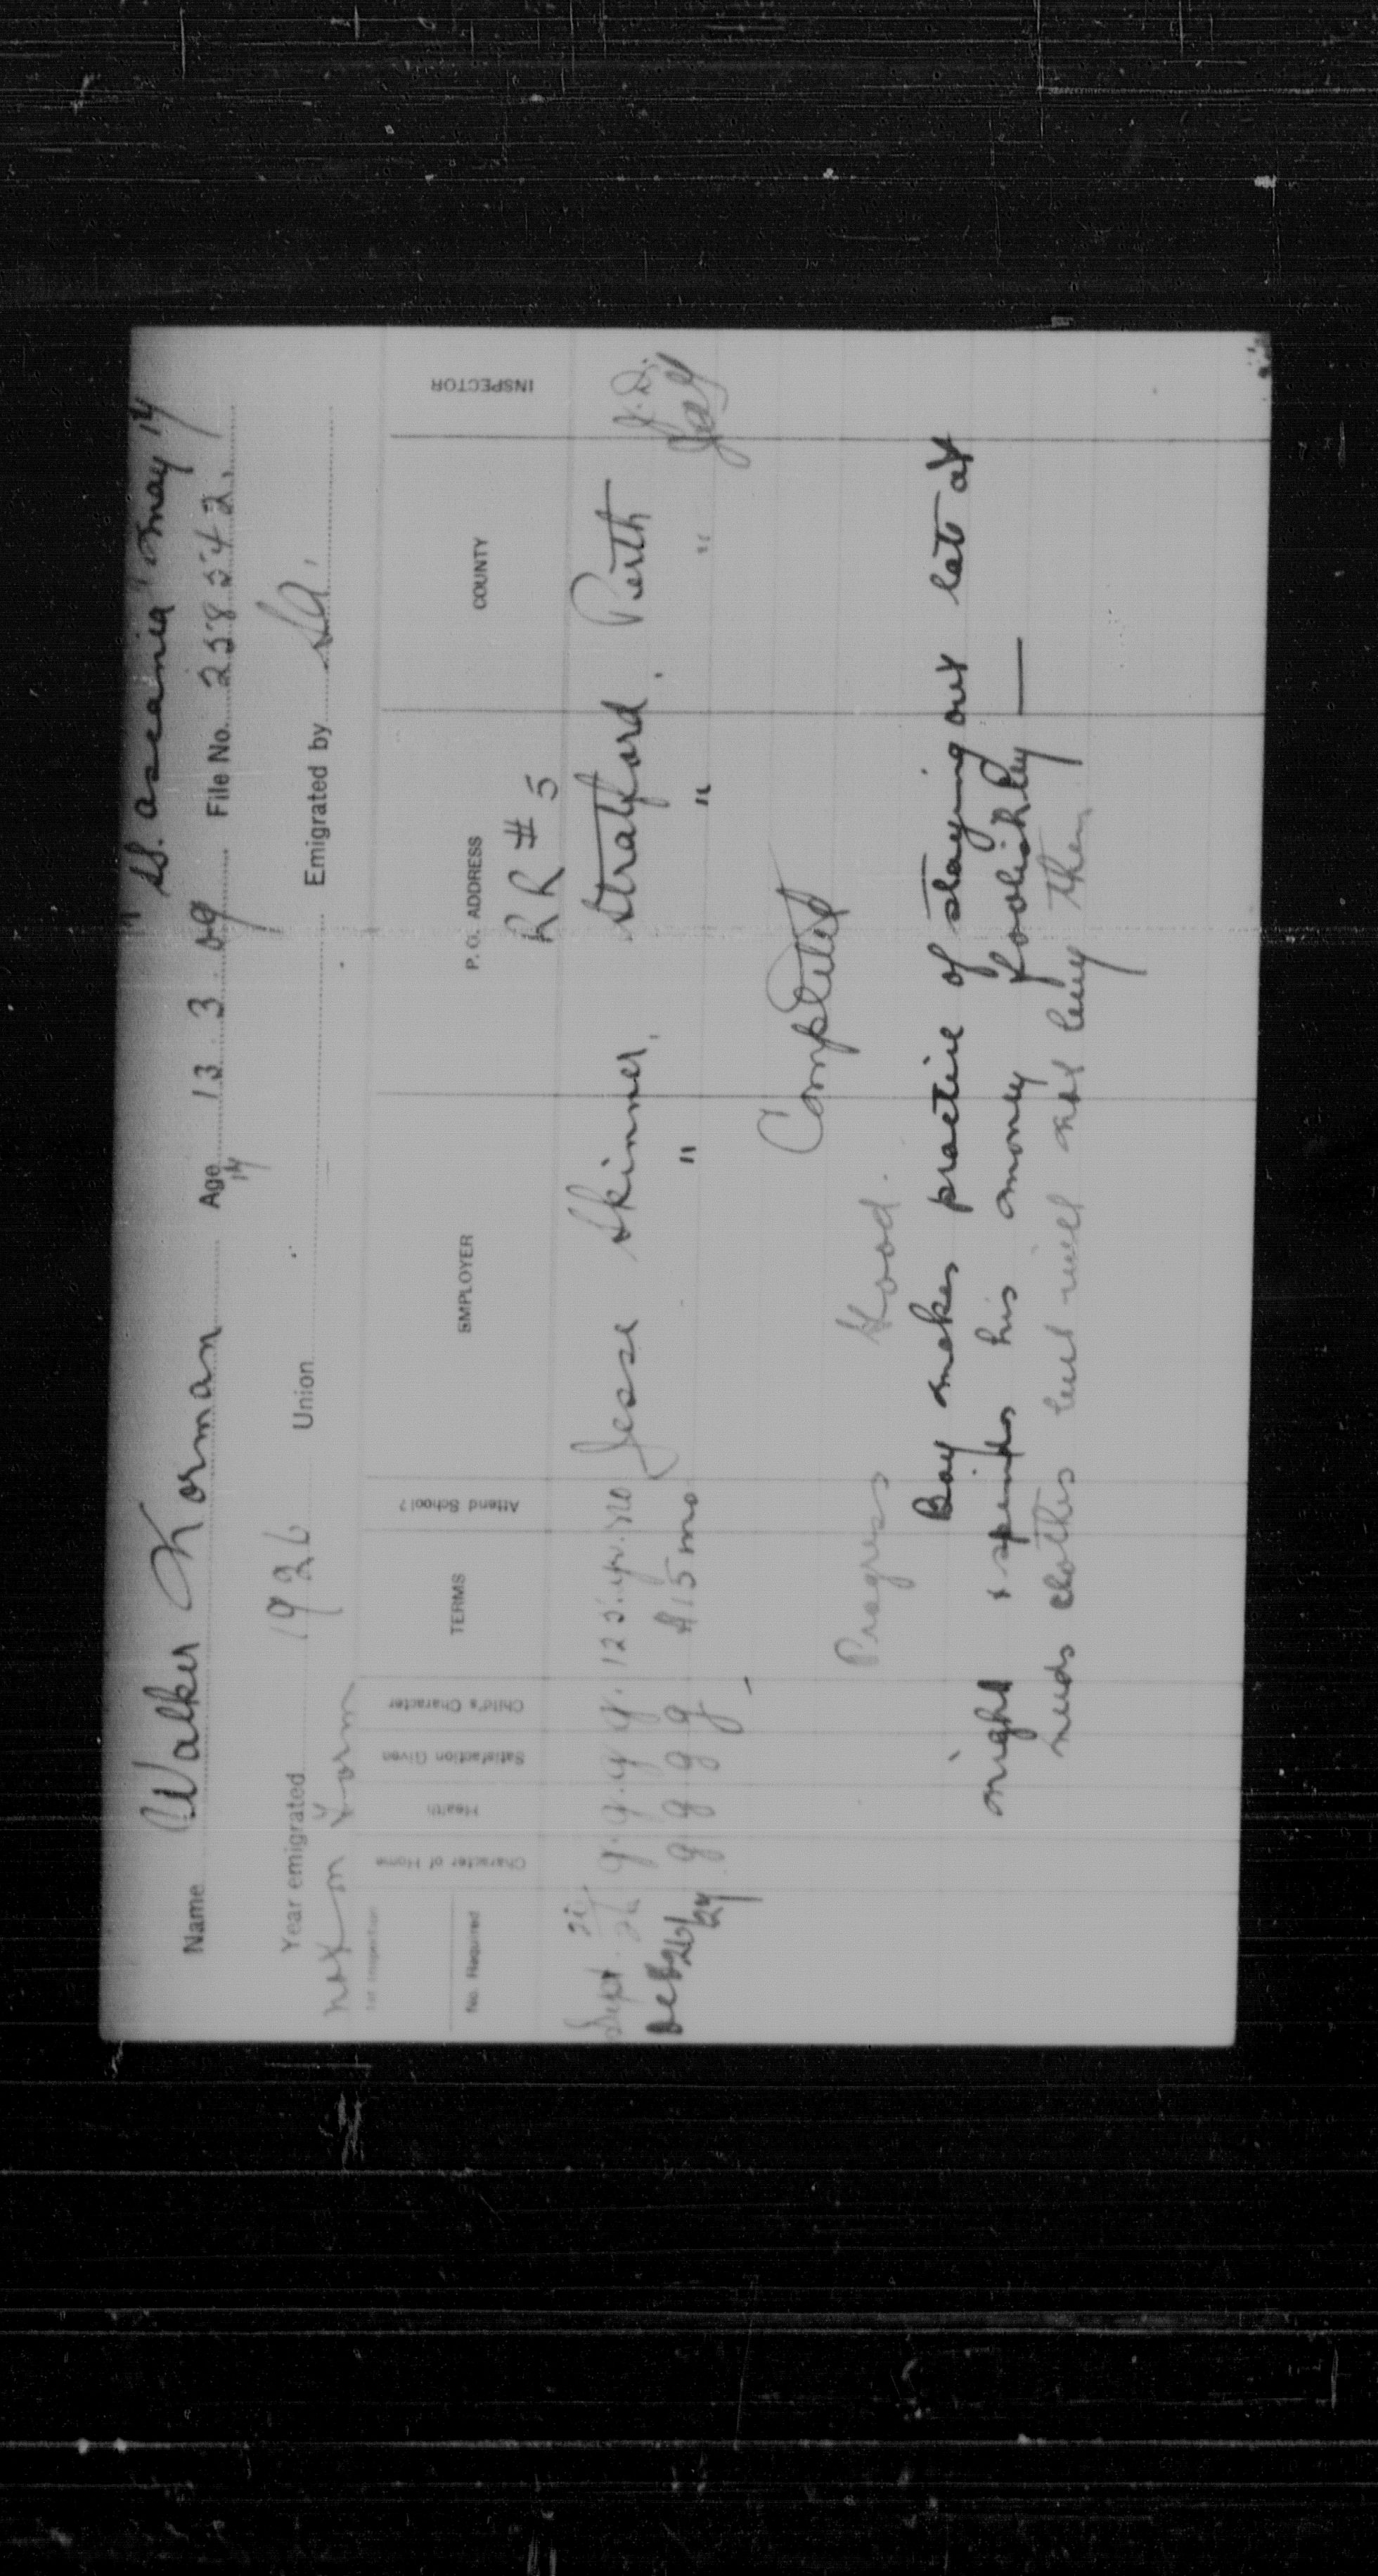 "SS. Ascania" May 14
Name Walker Norman Age 13 3 09 File No. 258542.
14
Year emigrated 1926 Union Emigrated by S.A.
not in form
1st Inspection
No. Required Character of Home Health Satisfaction Given Child's Character TERMS Attend School? EMPLOYER P. O. ADDRESS COUNTY INSPECTOR
RR # 5
Sept. 21/26 g. g. g g. 125. yr. no Jesse Skinner, Stratford. Perth
Oct 26/27 g g g g $15 mo " " "
Completed
Progress Good.
Boy makes practice of staying out late at
night & spends his money foolishly —
needs clothes but will not buy them